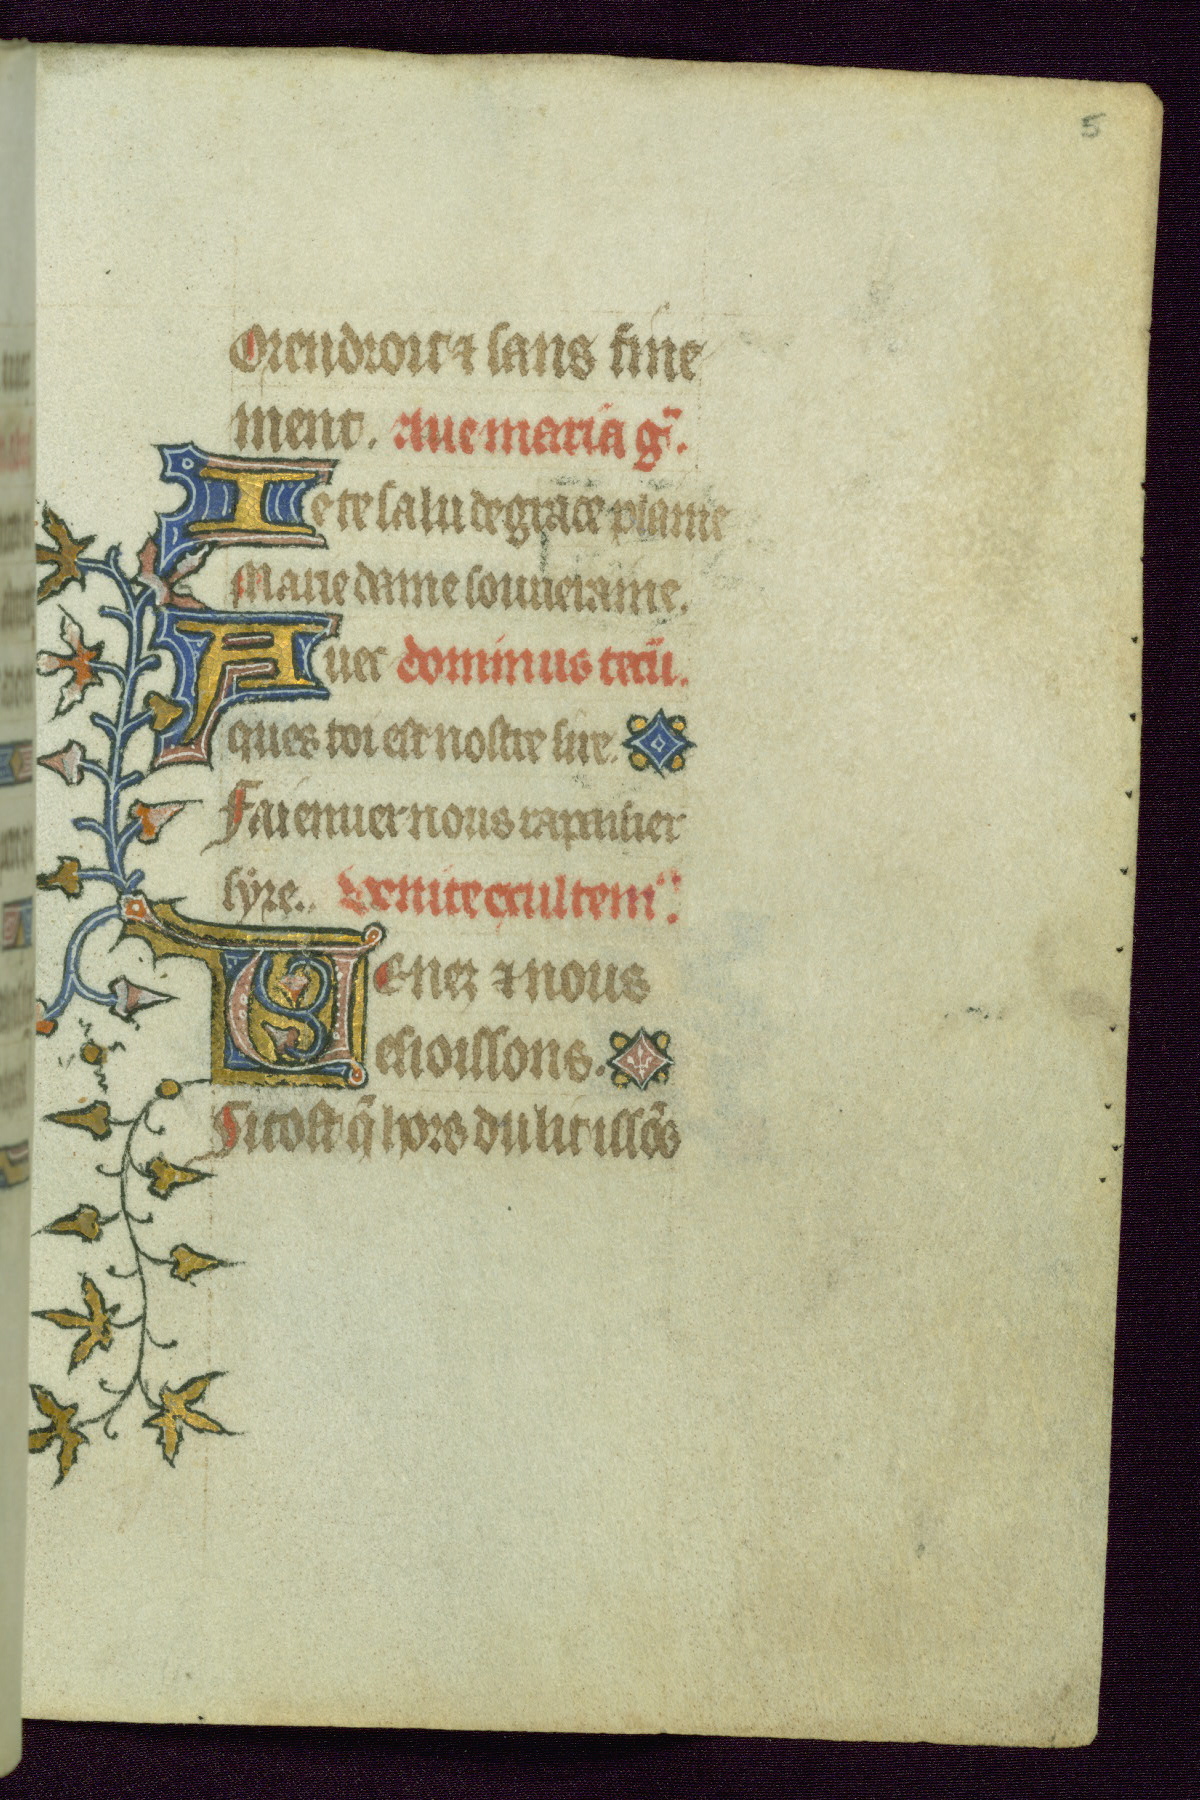 5
Orendroit ⁊ sans fine
ment. Aue maria gͣ.
Ie te salu de grace plaine
Marie dame souueraine.
Auec dominus tecū.
ques toi est nostre sire.
Fai enuer nous rapaisier
sÿre. Venite exultem9.
Uenez ⁊ nous
esioissons.
Si tost q̄ hors du lit issōs